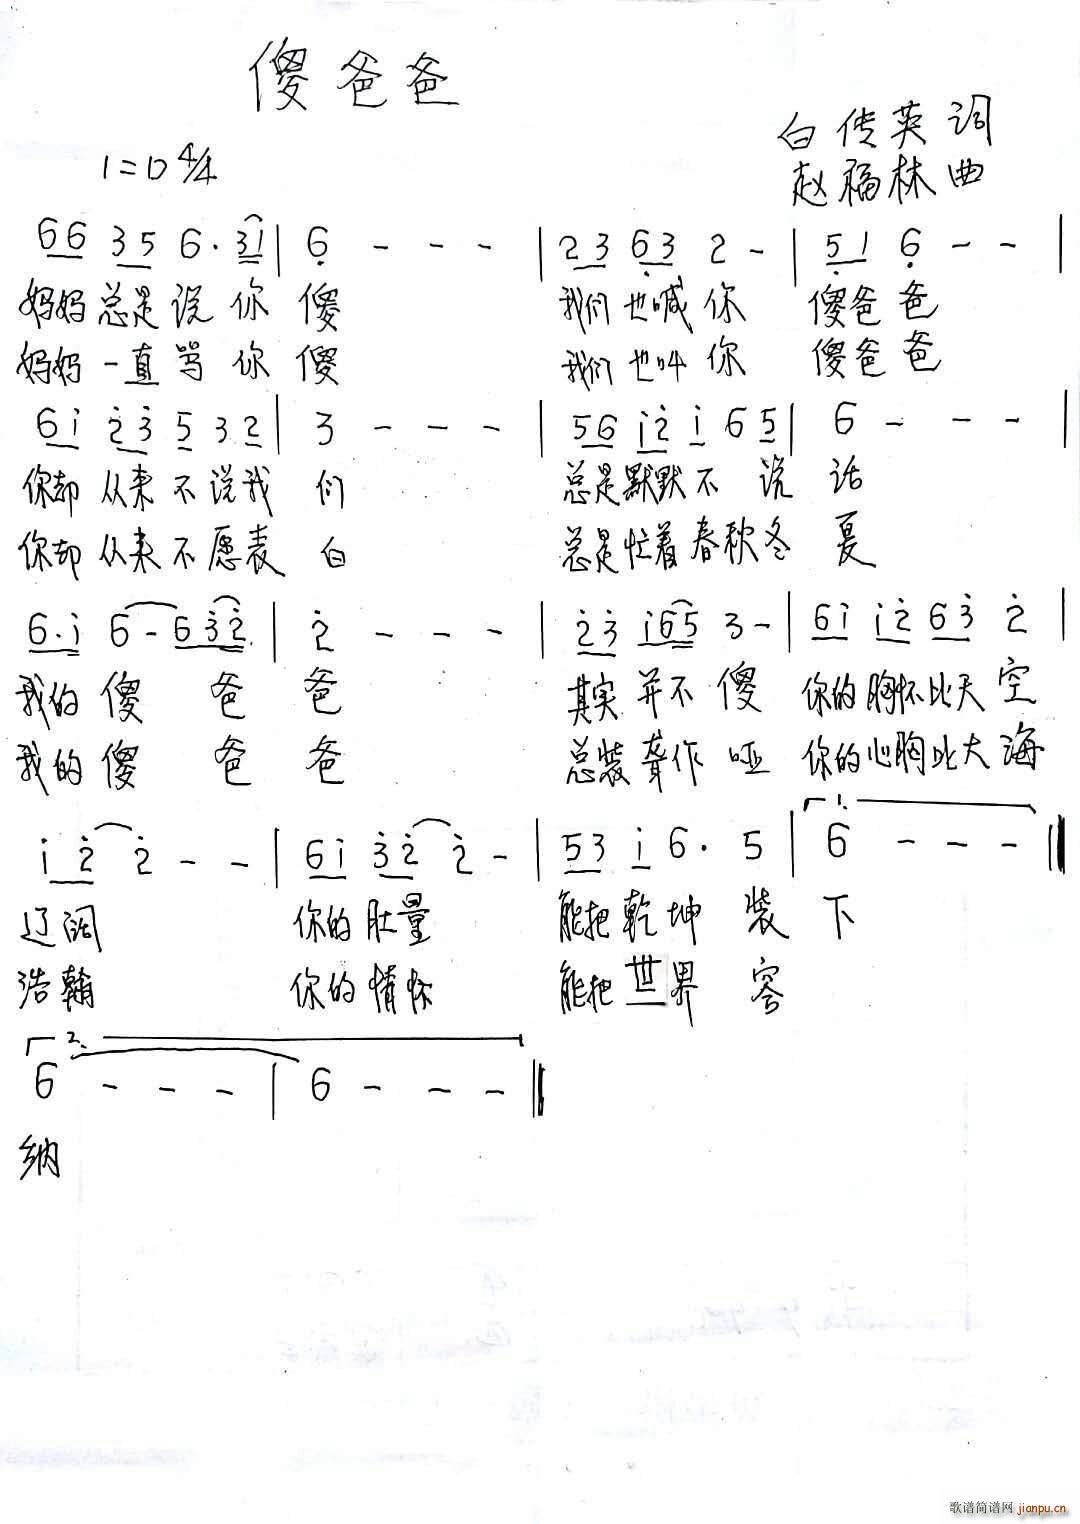 傻爸爸
白传英词
1=D 4/4
赵福林曲
66 35 6· 31 | 6 - - - | 23 63 2 - | 51 6 - - |
妈妈总是说你 傻 我们也喊你 傻爸爸
妈妈一直骂你 傻 我们也叫你 傻爸爸
6i 23 5 32 | 3 - - - | 56 i2 i 65 | 6 - - - |
你却从来不说我 们 总是默默不说 话
你却从来不愿表 白 总是忙着春秋冬 夏
6·i 6-632 | 2 - - - | 23 i65 3- | 6i i2 63 2 |
我的傻 爸 爸 其实并不傻 你的胸怀比天空
我的傻 爸 爸 总装聋作哑 你的心胸比大海
i2 2 - - | 6i 32 2 - | 53 i 6· 5 | 1. 6 - - - ‖
辽阔 你的肚量 能把乾坤 装 下
浩瀚 你的情怀 能把世界 容
2. 6 - - - | 6 - - - ‖
纳
歌谱简谱网 jianpu.cn